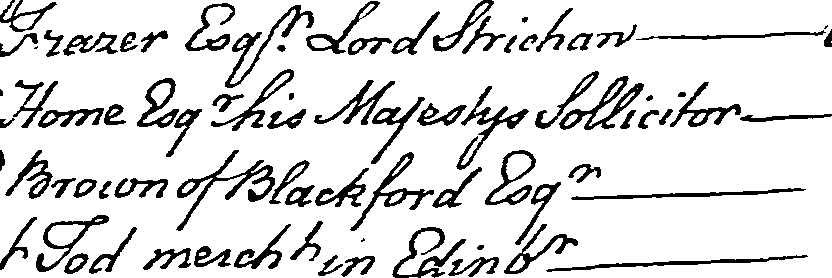 Frazer Esqr. Lord Strichan
Home Esqr his Majestys Sollicitor
Brown of Blackford Esqr
Tod mercht in Edinbr